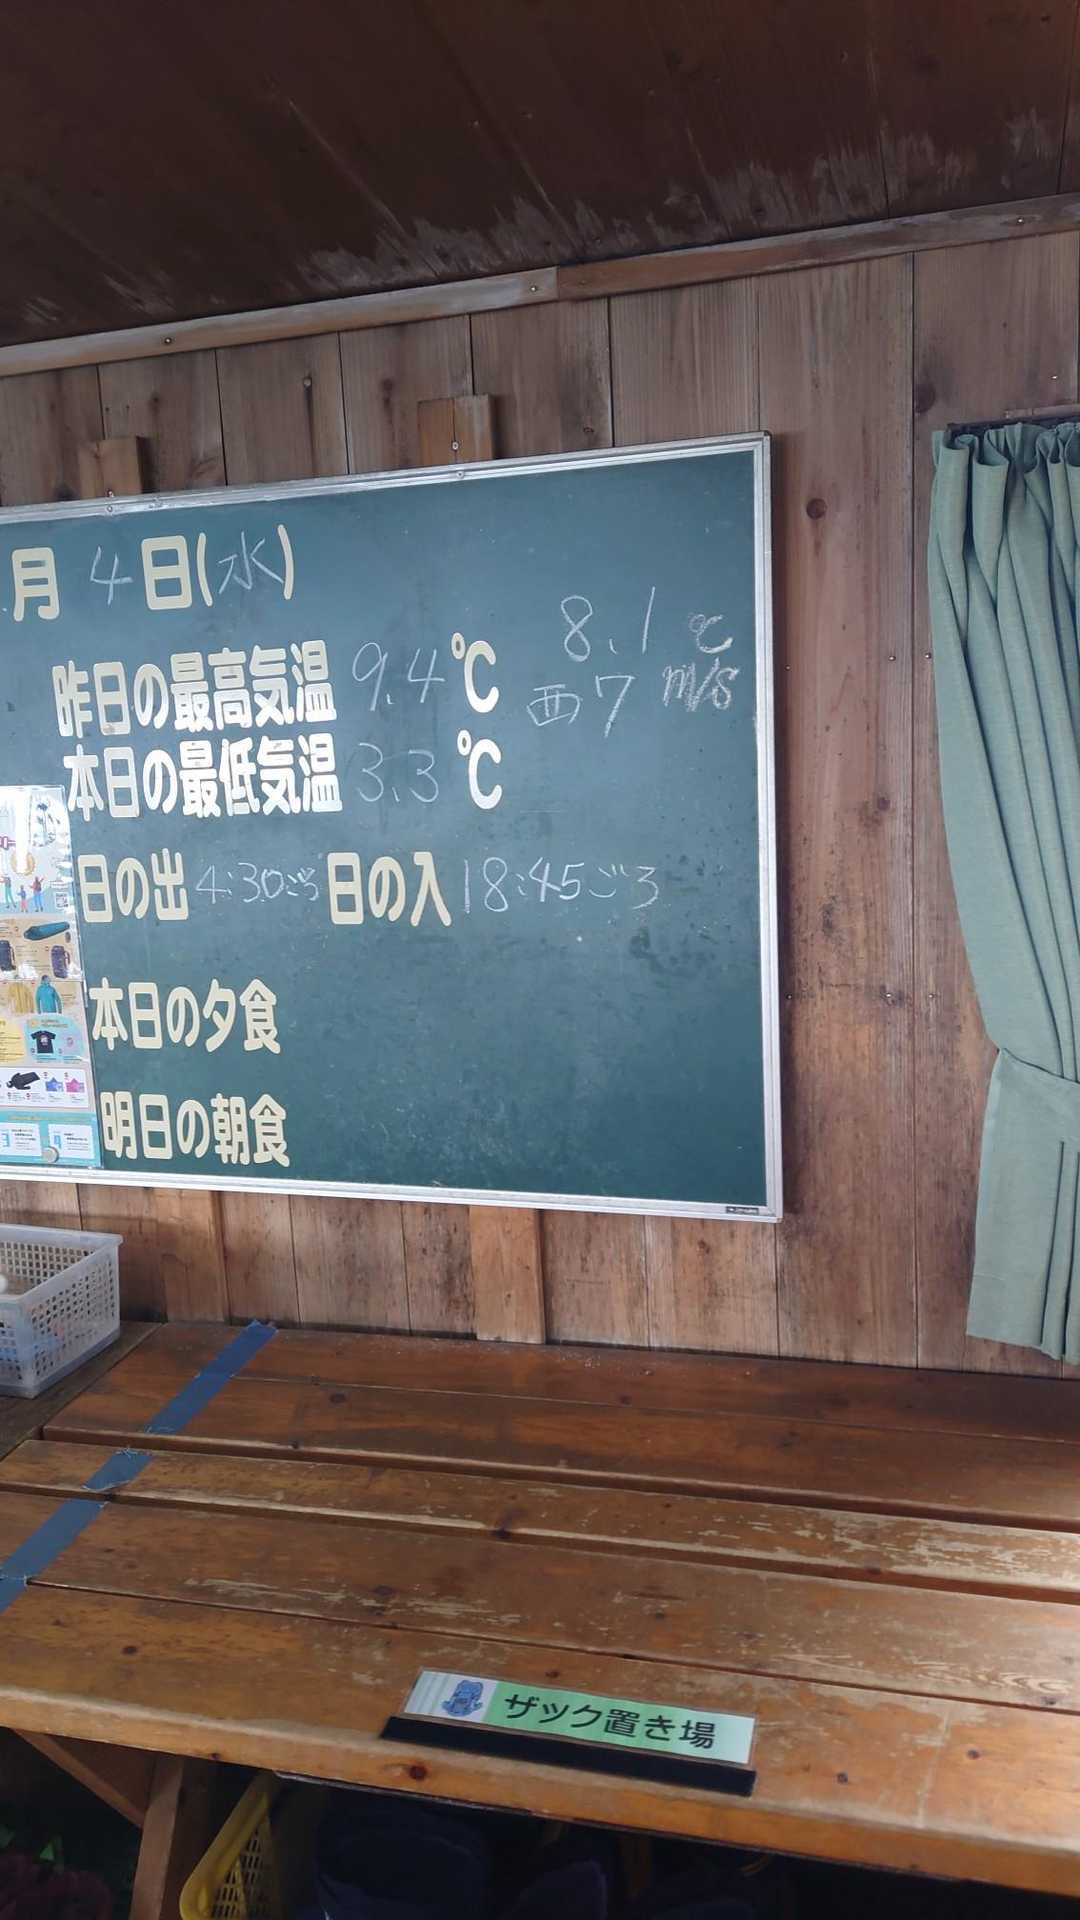 月 4日(水)
8.1 ℃
昨日の最高気温 9.4℃
西7 m/s
本日の最低気温 3.3℃
日の出 4:30ごろ 日の入 18:45ごろ
本日の夕食
明日の朝食
ザック置き場